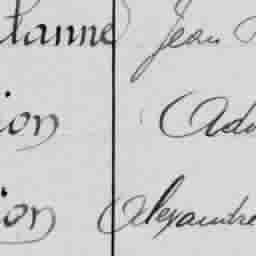 tanne Jean
ion Ado
ion Alexandre